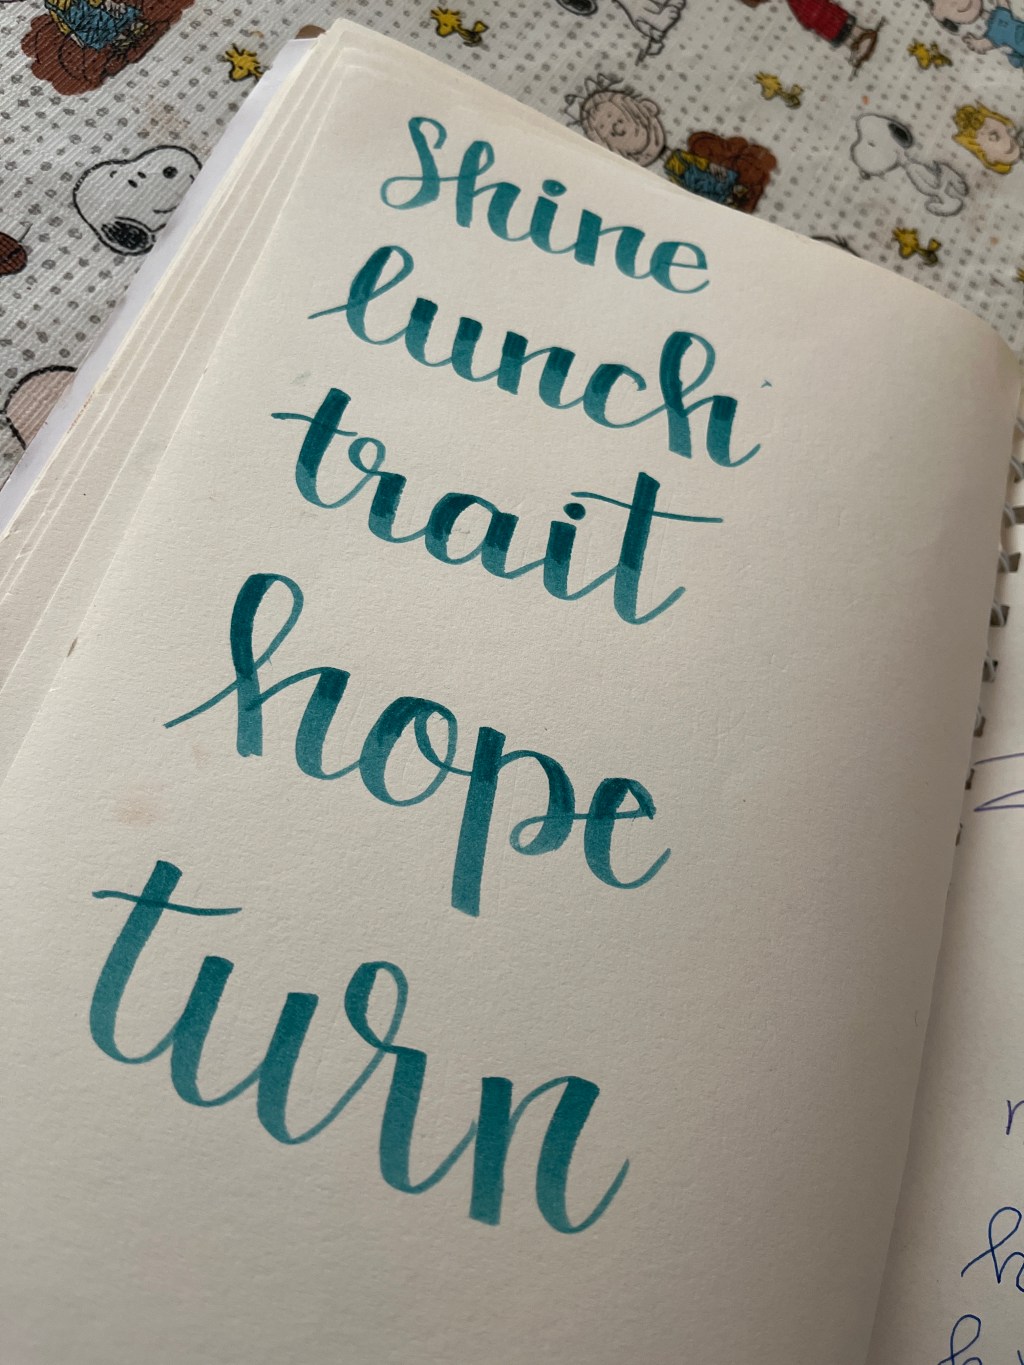 Shine
lunch
trait
hope
turn